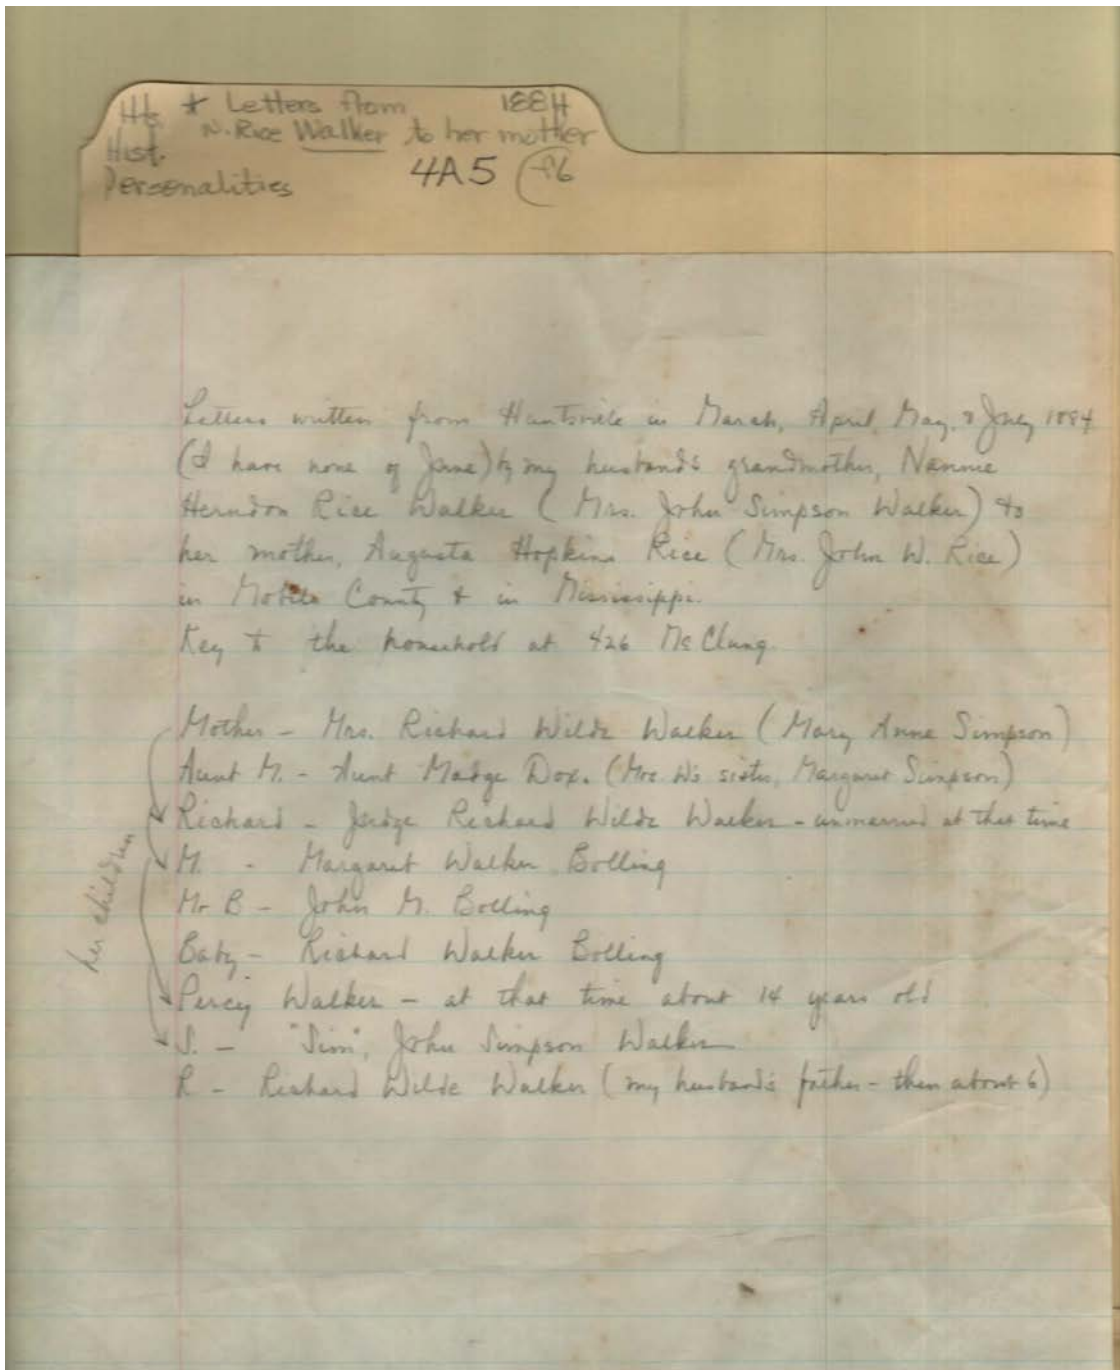 Hts. * Letters from 1884
N. Rice Walker to her mother
Hist.
Personalities 4A5 f6
Letters written from Huntsville in March, April, May, & July 1884
(I have none of June) by my husband's grandmother, Nannie
Herndon Rice Walker (Mrs. John Simpson Walker) to
her mother, Augusta Hopkins Rice (Mrs. John W. Rice)
in Mobile County & in Mississippi.
Key to the household at 426 McClung.
Mother - Mrs. Richard Wilde Walker (Mary Anne Simpson)
Aunt M. - Aunt Madge Dox. (Mrs. W's sister, Margaret Simpson)
Richard - Judge Richard Wilde Walker - unmarried at that time
M. - Margaret Walker Bolling
Mr B - John M. Bolling
Baby - Richard Walker Bolling
Percy Walker - at that time about 14 years old
S. - "Sim", John Simpson Walker
R - Richard Wilde Walker (my husband's father - then about 6)
her children